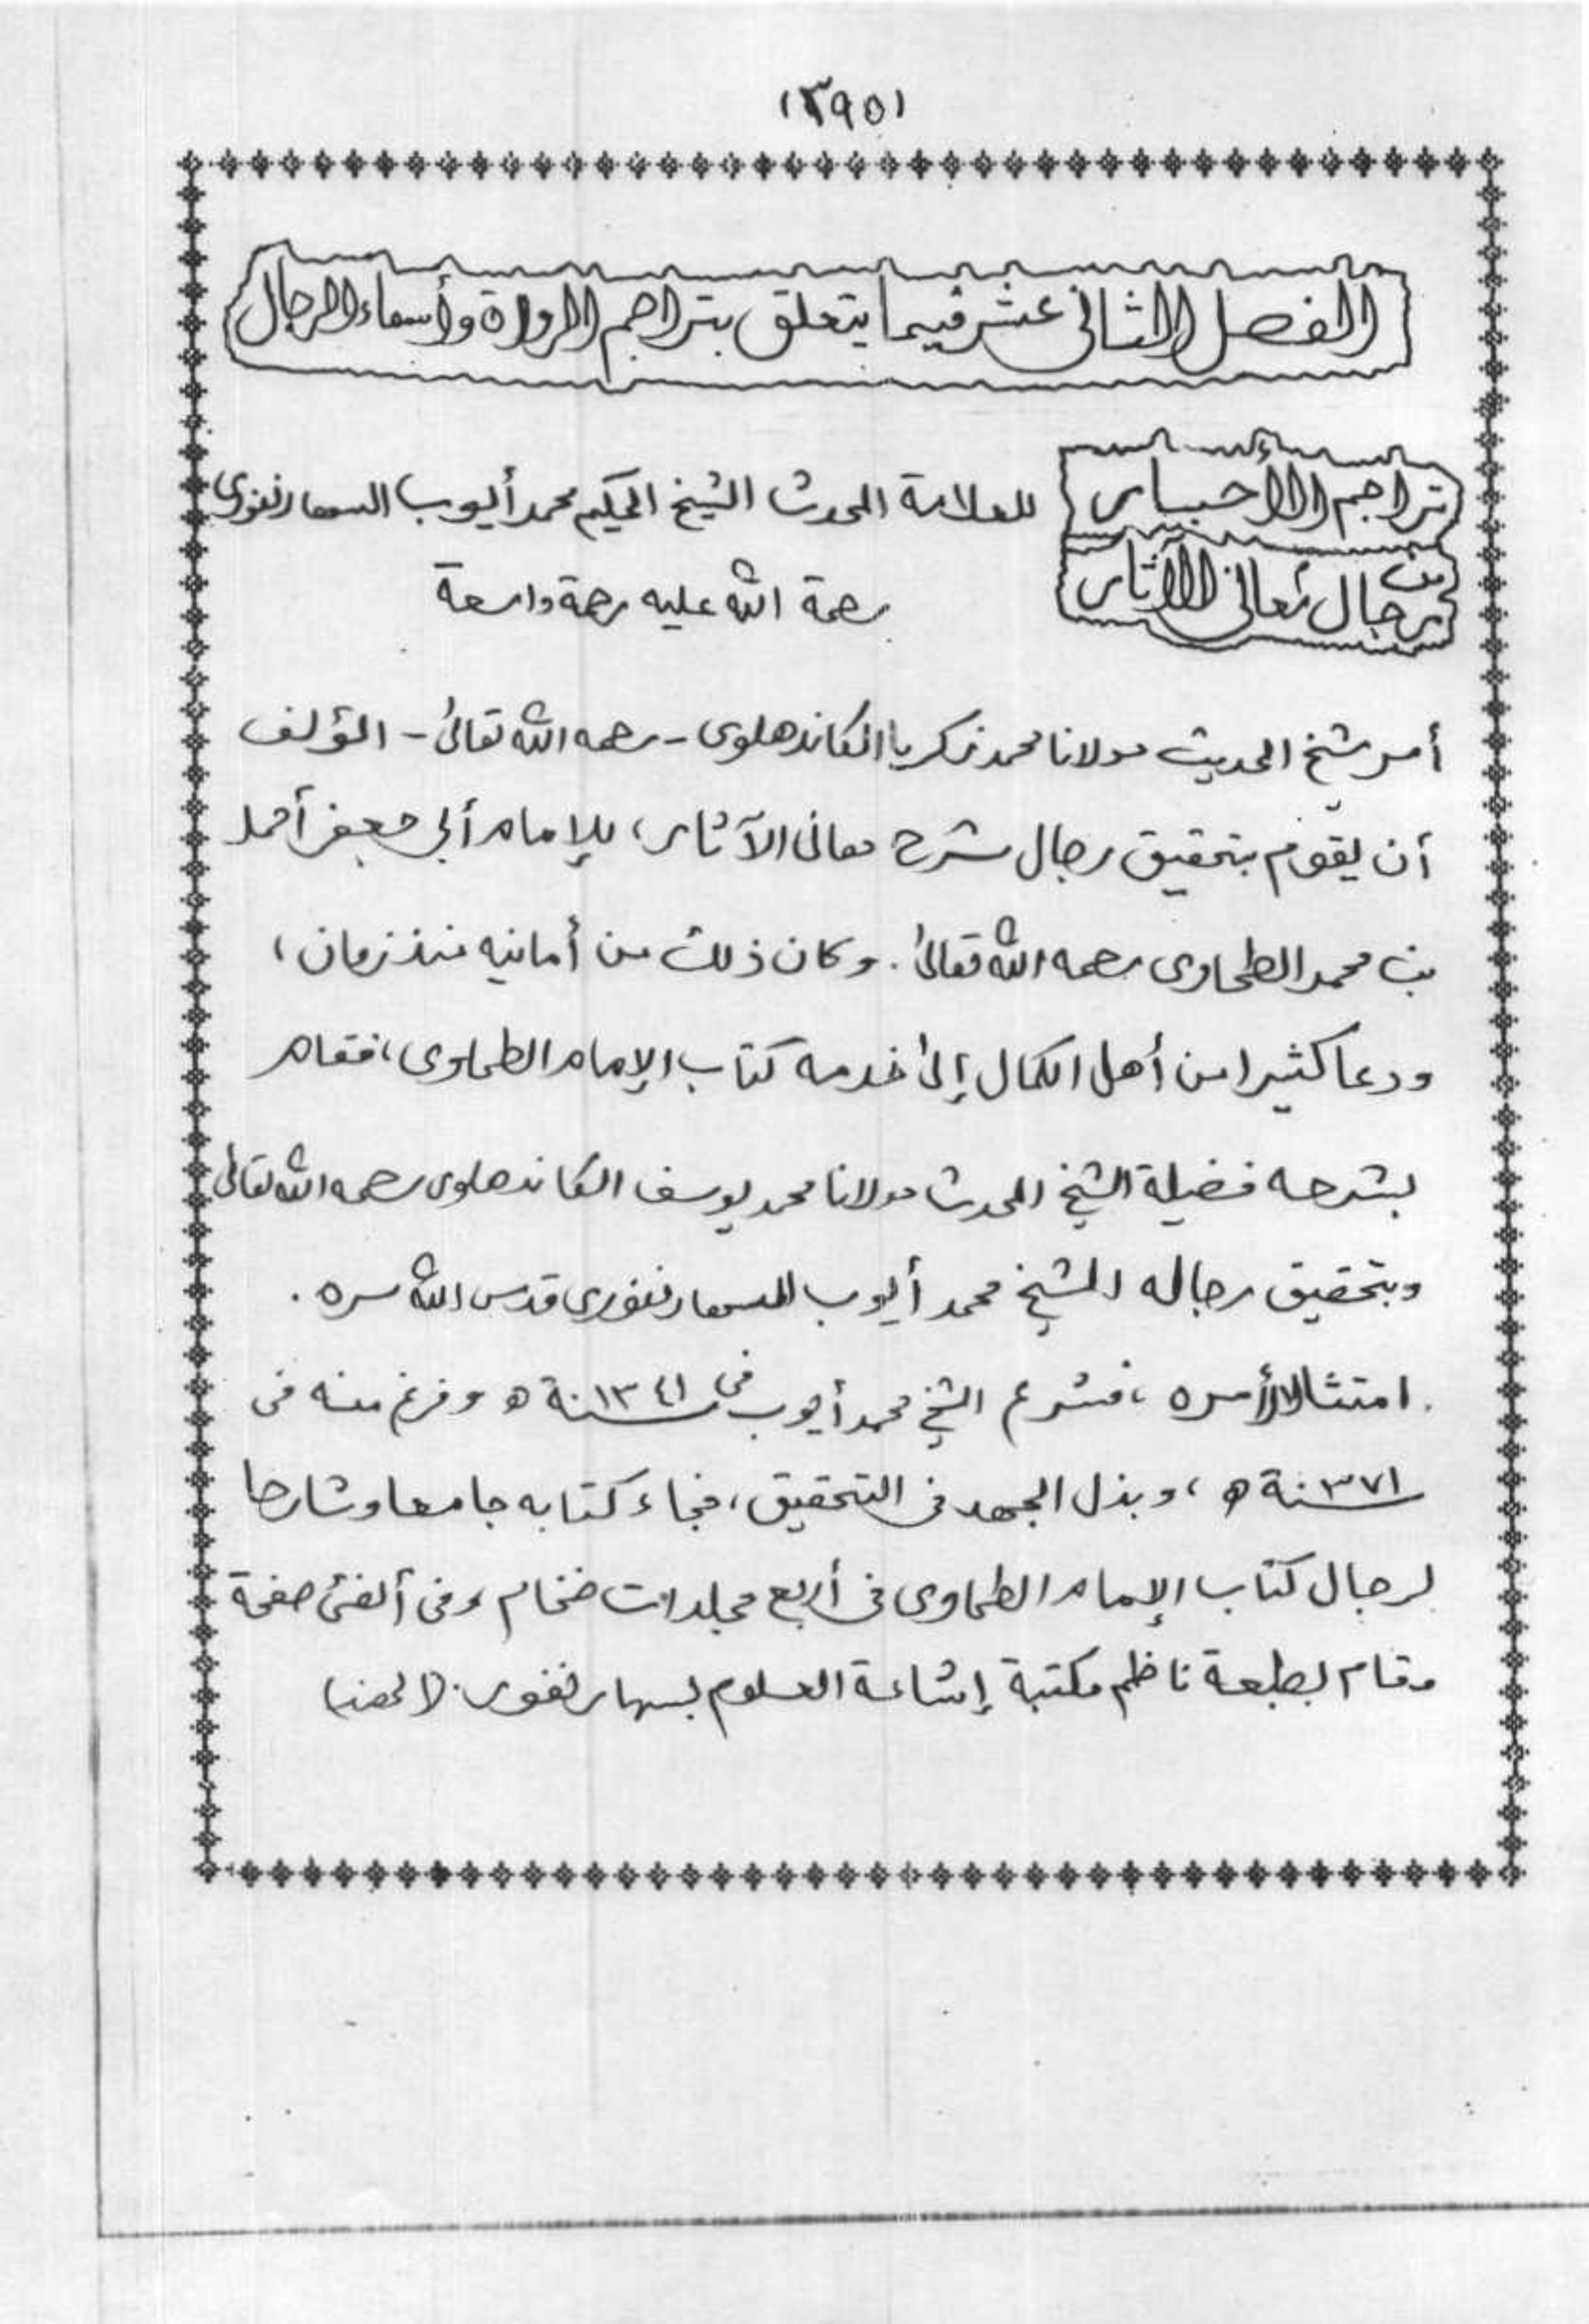 (٣٩٥)
الفصل الثانى عشر فيما يتعلق بتراجم الرواة وأسماء الرجال
تراجم الأحبار للعلامة المحدث الشيخ الحكيم محمد أيوب السهارنفورى
من رجال معانى الآثار رحمة الله عليه رحمة واسعة
أمر شيخ الحديث مولانا محمد زكريا الكاندهلوى - رحمه الله تعالىٰ - المؤلف
أن يقوم بتحقيق رجال شرح معانى الآثار، للإمام أبى جعفر أحمد
بن محمد الطحاوى رحمه الله تعالىٰ. وكان ذلك من أمانيه منذ زمان،
ودعا كثيرا من أهل الكمال إلىٰ خدمة كتاب الإمام الطحاوى، فقام
بشرحه فضيلة الشيخ المحدث مولانا محمد يوسف الكاندهلوى رحمه الله تعالىٰ
وبتحقيق رجاله الشيخ محمد أيوب السهارنفورى قدس الله سره.
امتثالا لأمره، فشرع الشيخ محمد أيوب فى سنة ١٣٤١ ه وفرغ منه فى
سنة ١٣٧١ ه، وبذل الجهد فى التحقيق، فجاء كتابه جامعا وشارحا
لرجال كتاب الإمام الطحاوى فى أربع مجلدات ضخام وفى ألفى صفحة
وقام بطبعة ناظم مكتبة إشاعة العلوم بسهارنفور. (الهند)